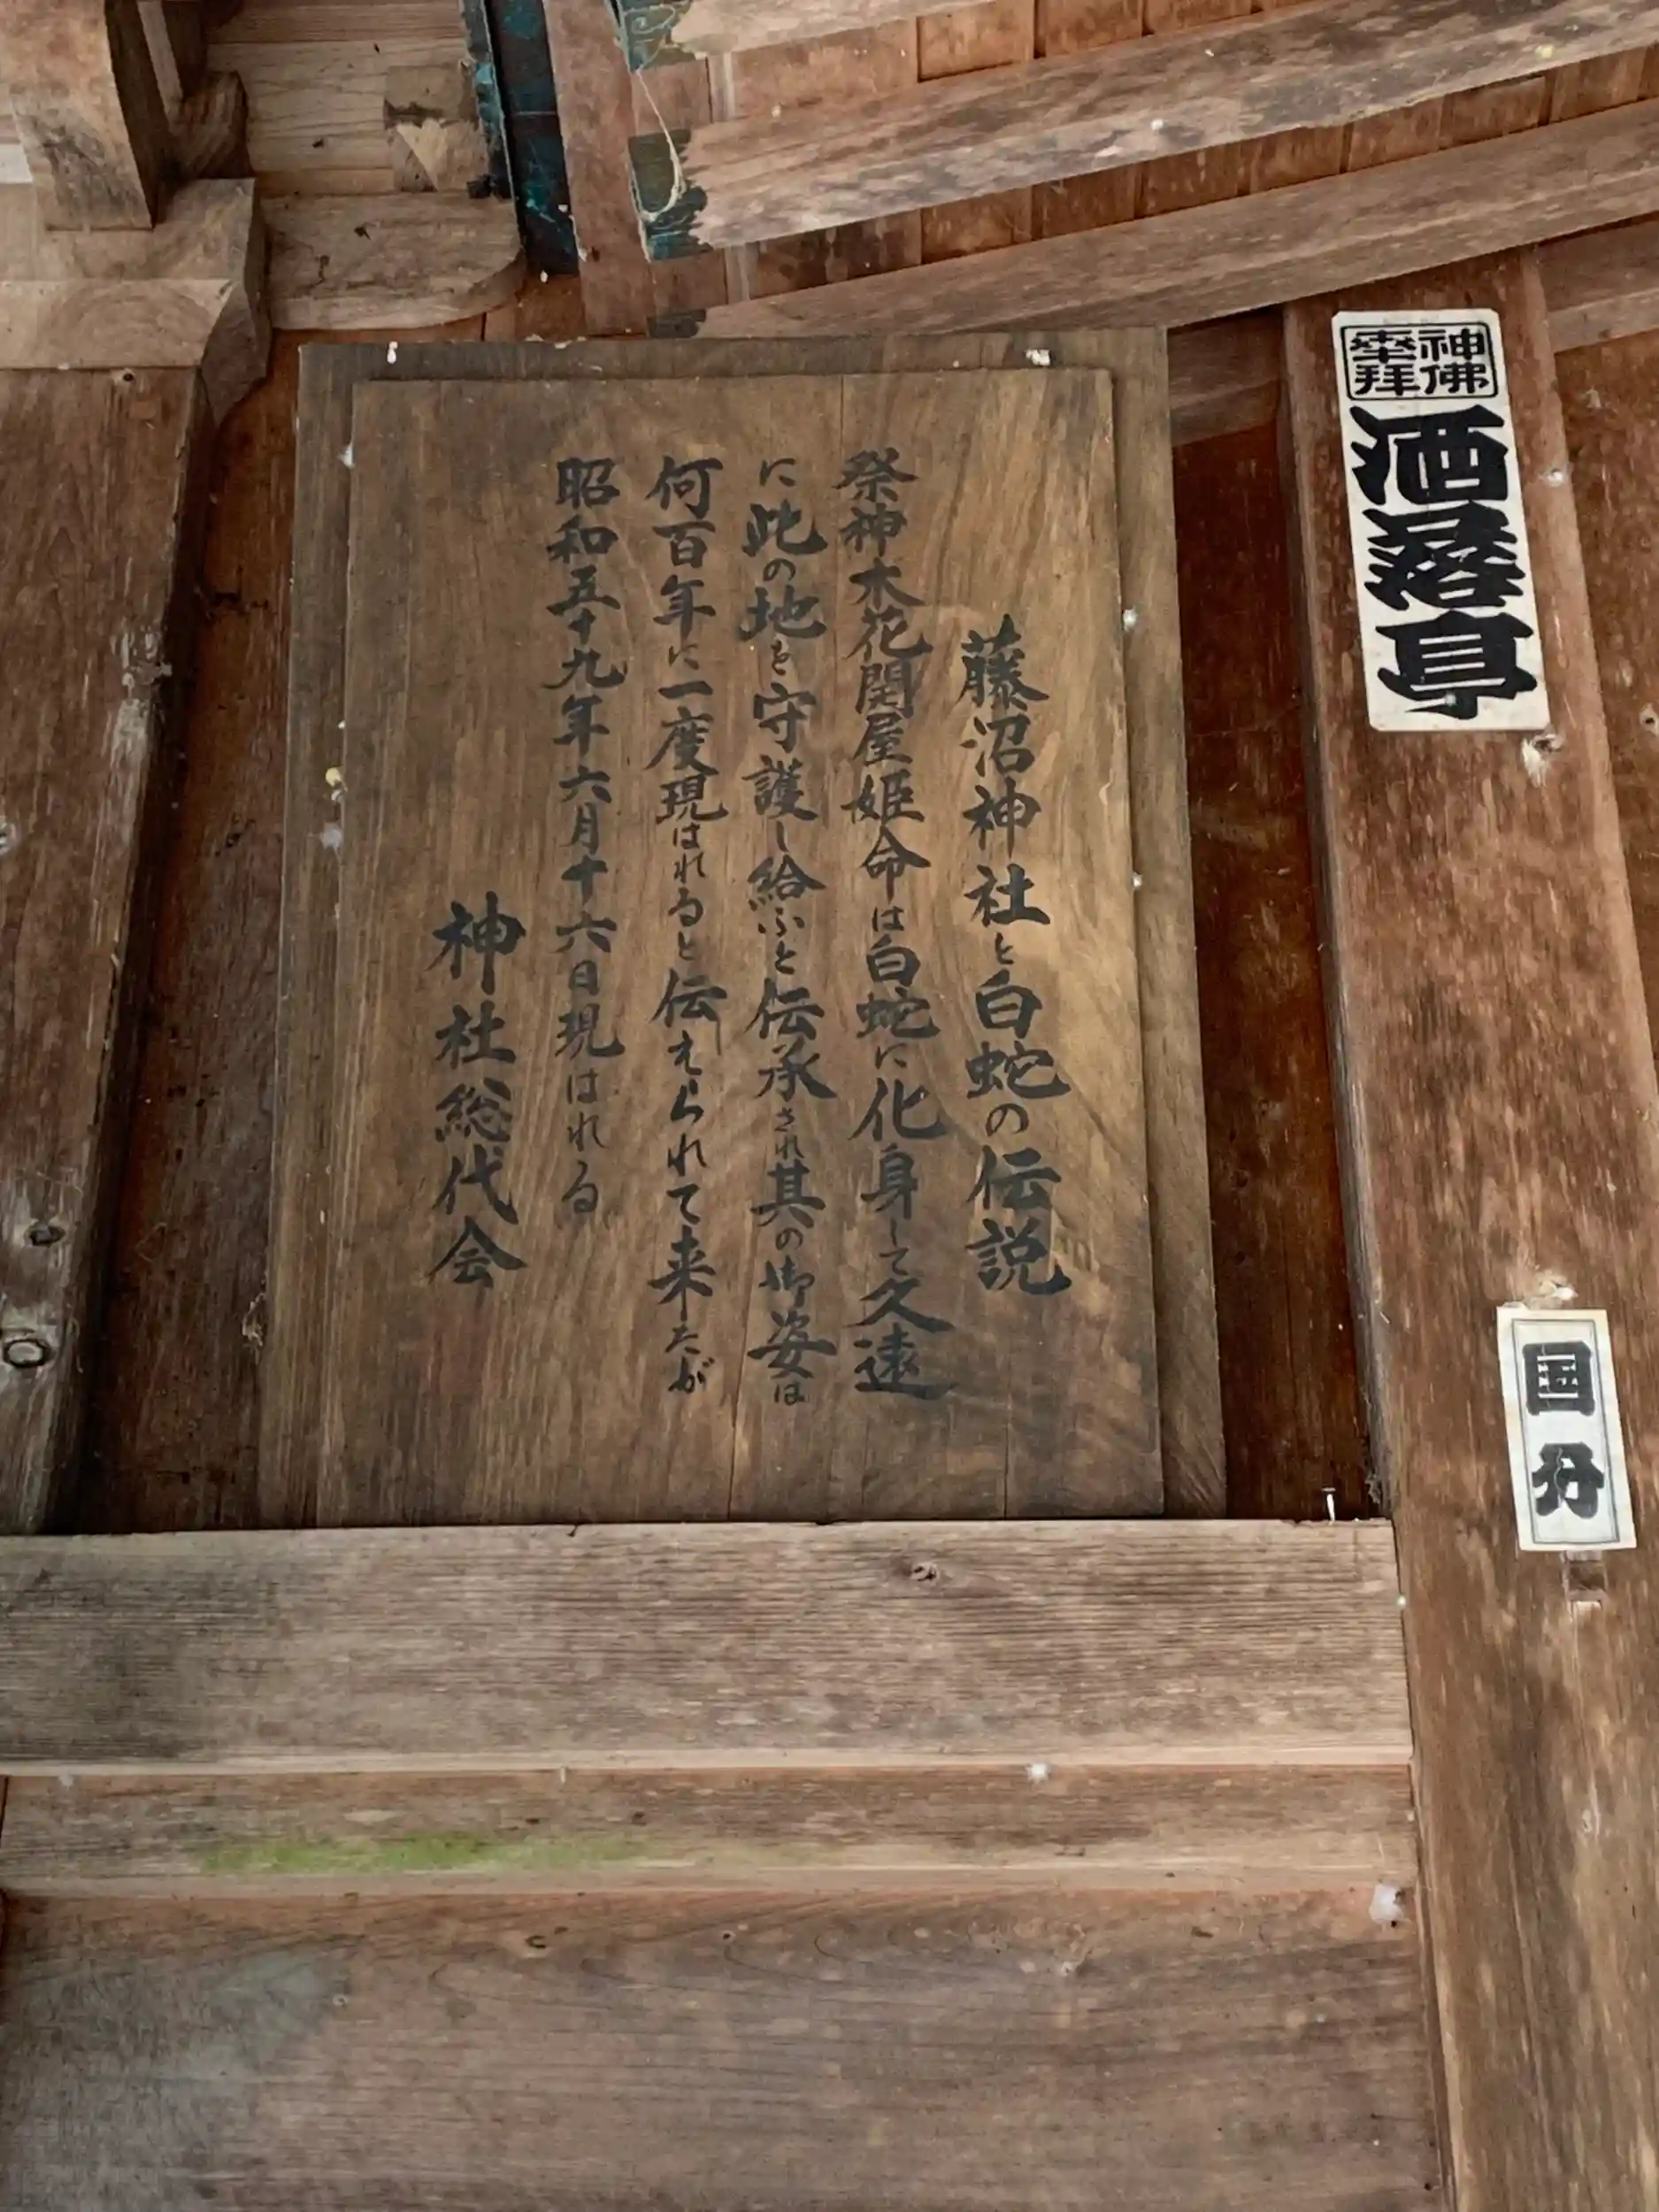 藤沼神社と白蛇の伝説
祭神木花開屋姫命は白蛇に化身して久遠
に此の地を守護し給ふと伝承され其の御姿は
何百年に一度現はれると伝えられて来たが
昭和五十九年六月十六日現はれる
神社総代会
神佛
奉拝
洒落亭
国分